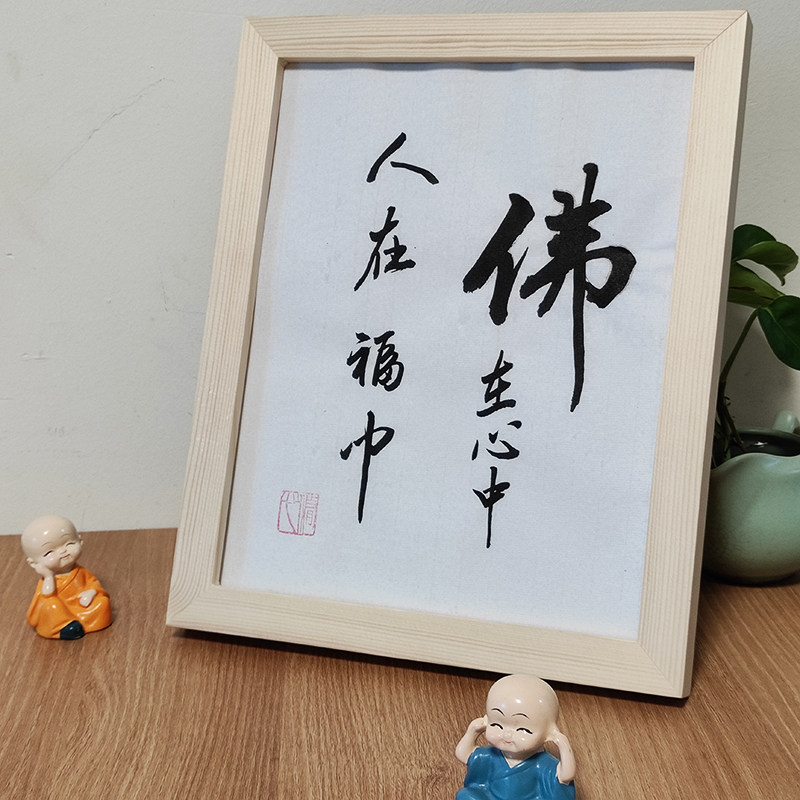 佛在心中
人在福中